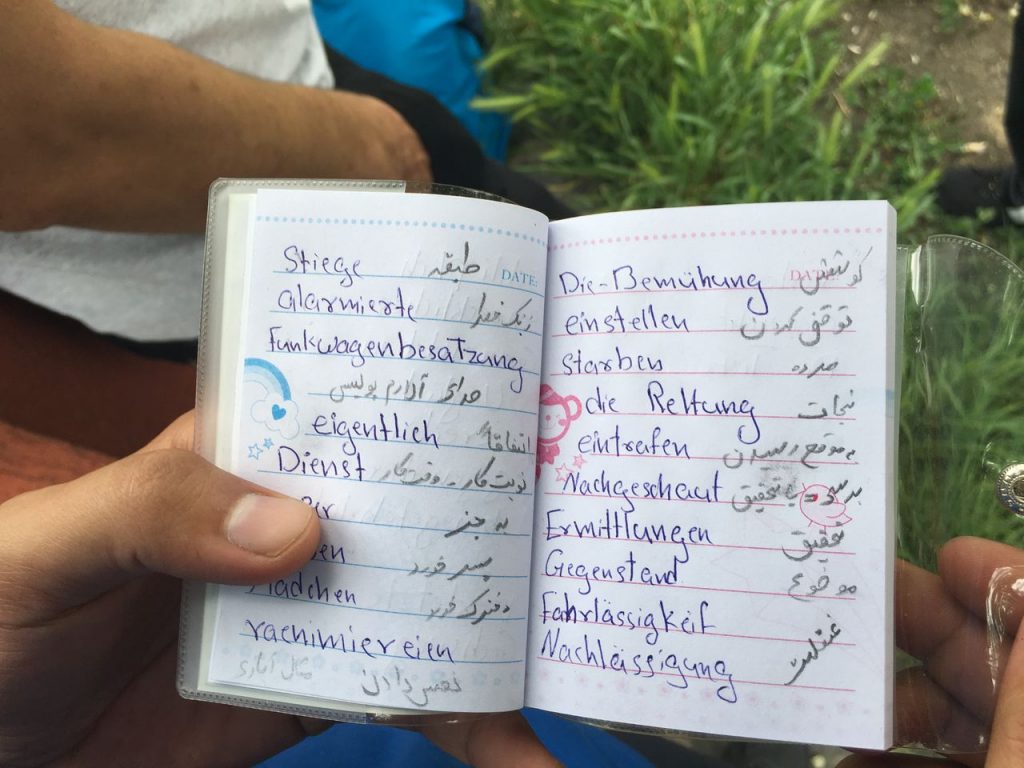 DATE:
Stiege طبقه
alarmierte زنگ خطر
Funkwagenbesatzung
صدای آلارم پولیس
eigentlich اتفاقا
Dienst نوبت کار - وقت کار
به جز
پسر خورد
دخترک خورد
rachimiereien
Die-Bemühung کوشش
einstellen توقف کردن
Starben مرده
die Rettung نجات
eintrafen به موقع رسیدن
Nachgeschaut بررسی یا تحقیق
Ermittlungen تحقیق
Gegenstand موضوع
Fahrlässigkeit
Nachlässigung غفلت